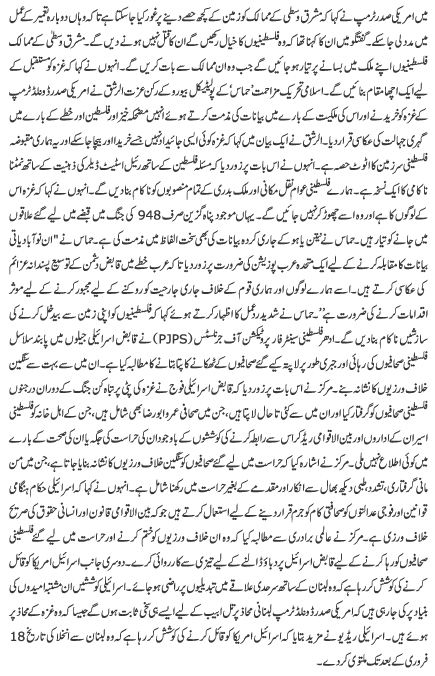 میں امریکی صدر ٹرمپ نے کہا کہ مشرق وسطی کے ممالک کو زمین کے کچھ حصے دینے پر غور کیا جاسکتا ہے تاکہ وہاں دوبارہ تعمیر کے عمل
میں مدد لی جاسکے۔ گفتگو میں ان کا کہنا تھا کہ وہ فلسطینیوں کا خیال رکھیں گے ان کا قتل نہیں ہونے دیں گے۔ مشرق وسطی کے ممالک
فلسطینیوں اپنے ملک میں بسانے پر تیار ہو جائیں گے جب وہ ان ممالک سے بات کریں گے۔ انہوں نے کہا کہ غزہ کو مستقبل کے
لیے ایک اچھا مقام بنائیں گے۔ اسلامی تحریک مزاحمت 'حماس' کے پولیٹیکل بیورو کے رکن عزت الرشق نے امریکی صدر ڈونلڈ ٹرمپ
کے غزہ کو خریدنے اور اس کی ملکیت کے بارے میں بیانات کی مذمت کرتے ہوئے انہیں مضحکہ خیز اور فلسطین اور خطے کے بارے میں
گہری جہالت کی عکاسی قرار دیا۔ الرشق نے ایک بیان میں کہا کہ غزہ کوئی ایسی جائیداد نہیں جسے خریدا اور بیچا جاسکے اور یہ ہماری مقبوضہ
فلسطینی سرزمین کا اٹوٹ حصہ ہے۔ انہوں نے اس بات پر زور دیا کہ مسئلہ فلسطین کے ساتھ رئیل اسٹیٹ ڈیلر کی ذہنیت کے ساتھ نمٹنا
ناکامی کا ایک نسخہ ہے۔ ہمارے فلسطینی عوام نقل مکانی اور ملک بدری کے تمام منصوبوں کو ناکام بنا دیں گے۔ انہوں نے کہا کہ غزہ اس
کے لوگوں کا ہے اور وہ اسے چھوڑ کر نہیں جائیں گے۔ یہاں موجود پناہ گزین صرف 948 کی جنگ میں قبضے میں لیے گئے علاقوں
میں جانے کو تیار ہیں۔ حماس نے نیتن یاہو کے جاری کردہ بیانات کی بھی سخت الفاظ میں مذمت کی ہے۔ حماس نے "ان نو آبادیاتی
بیانات کا مقابلہ کرنے کے لیے ایک متحدہ عرب پوزیشن کی ضرورت پر زور دیا تاکہ عرب خطے میں قابض دشمن کے توسیع پسندانہ عزائم
کی عکاسی کرتے ہیں۔ اسے ہمارے لوگوں اور ہماری قوم کے خلاف جاری جارحیت کو روکنے کے لیے مجبور کرنے کے لیے موثر
اقدامات کرنے کی ضرورت ہے"۔ حماس نے شدید رد عمل کا اظہار کرتے ہوئے کہا کہ فلسطینیوں کو اپنی زمین سے بیدخل کرنے کی
سازشیں ناکام بنا دیں گے۔ ادھر فلسطینی سینٹر فار پروٹیکشن آف جرنلسٹس (PJPS) نے قابض اسرائیلی جیلوں میں پابند سلاسل
صحافیوں کی رہائی اور جبری طور پر لاپتہ کیے گئے صحافیوں کے ٹھکانے کا پتا بتانے کا مطالبہ کیا ہے۔ ان میں سے بہت سے سنگین
خلاف ورزیوں کا نشانہ بنے۔ مرکز نے اس بات پر زور دیا کہ قابض اسرائیلی فوج نے غزہ کی پٹی پر تباہ کن جنگ کے دوران درجنوں
فلسطینی صحافیوں کو گرفتار کیا اور ان میں سے کئی تاحال لاپتا ہیں، جن میں صحافی عمرو ابو رضا بھی شامل ہیں، جن کے اہل خانہ کو فلسطینی
اسیران کے اداروں اور بین الاقوامی ریڈ کراس سے رابطہ کرنے کی کوششوں کے باوجود ان کی حراست کی جگہ یا ان کی صحت کے بارے
میں کوئی اطلاع نہیں ملی۔ مرکز نے اشارہ کیا کہ حراست میں لیے گئے صحافیوں کو سنگین خلاف ورزیوں کا نشانہ بنایا جاتا ہے، جن میں من
مانی گرفتاری، تشدد، طبی دیکھ بھال سے انکار اور مقدمے کے بغیر حراست میں رکھنا شامل ہے۔ انہوں نے کہا کہ اسرائیلی حکام ہنگامی
قوانین اور فوجی عدالتوں کو صحافتی کام کو جرم قرار دینے کے لیے استعمال کرتے ہیں جو کہ بین الاقوامی قانون اور انسانی حقوق کی صریح
خلاف ورزی ہے۔ مرکز نے عالمی برادری سے مطالبہ کیا کہ وہ ان خلاف ورزیوں کو ختم کرنے اور حراست میں لیے گئے فلسطینی
صحافیوں کو رہا کرنے کے لیے قابض اسرائیل پر دباؤ ڈالنے کے لیے تیزی سے کارروائی کرے۔ دوسری جانب اسرائیل امریکا کو قائل
کرنے کی کوشش کر رہا ہے کہ وہ لبنان کے ساتھ سرحدی علاقے میں تبدیلیوں پر راضی ہو جائے۔ اسرائیلی کوششیں ان مشتبہ امیدوں کی
بنیاد پر کی جا رہی ہیں کہ امریکی صدر ڈونلڈ ٹرمپ لبنانی محاذ پر تل ابیب کے لیے ایسے ہی سخی ثابت ہوں گے جیسا کہ وہ غزہ کے محاذ پر
ہوئے ہیں۔ اسرائیلی ریڈیو نے مزید بتایا کہ اسرائیل امریکا کو قائل کرنے کی کوشش کر رہا ہے کہ وہ لبنان سے انخلا کی تاریخ 18
فروری کے بعد تک ملتوی کر دے۔